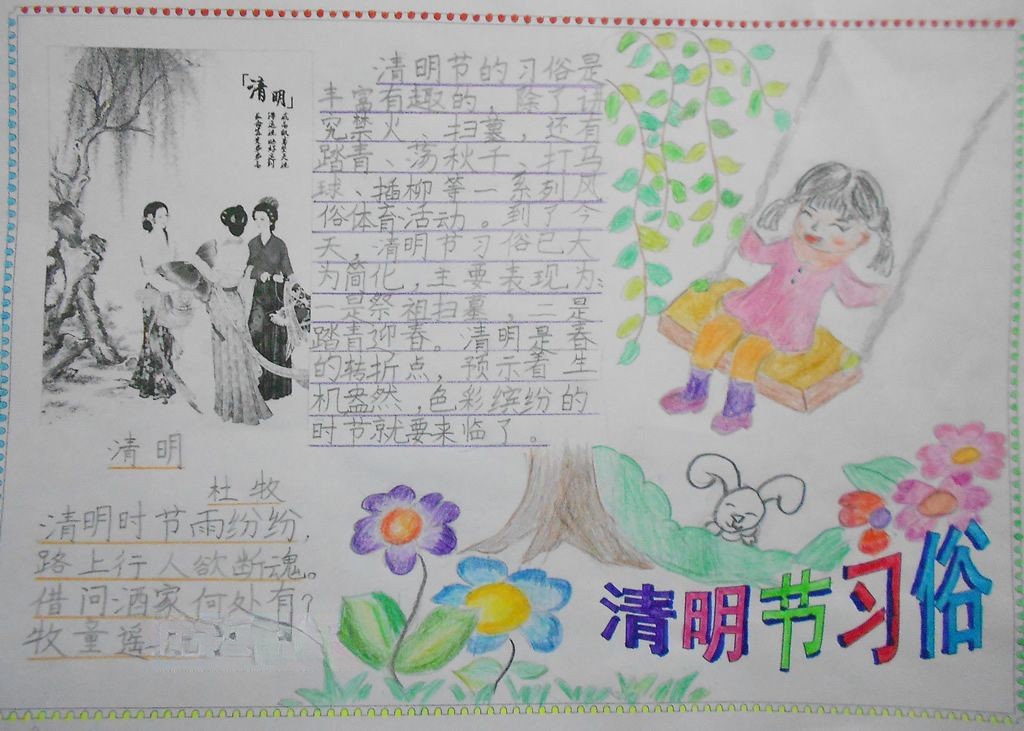 「清明」
清明节的习俗是
丰富有趣的，除了讲
究禁火、扫墓，还有
踏青、荡秋千、打马
球、插柳等一系列风
俗体育活动。到了今
天，清明节习俗已大
为简化，主要表现为：
一是祭祖扫墓，二是
踏青迎春。清明是春
的转折点，预示着生
机盎然，色彩缤纷的
时节就要来临了。
清明
杜牧
清明时节雨纷纷，
路上行人欲断魂。
借问酒家何处有？
牧童遥
清明节习俗